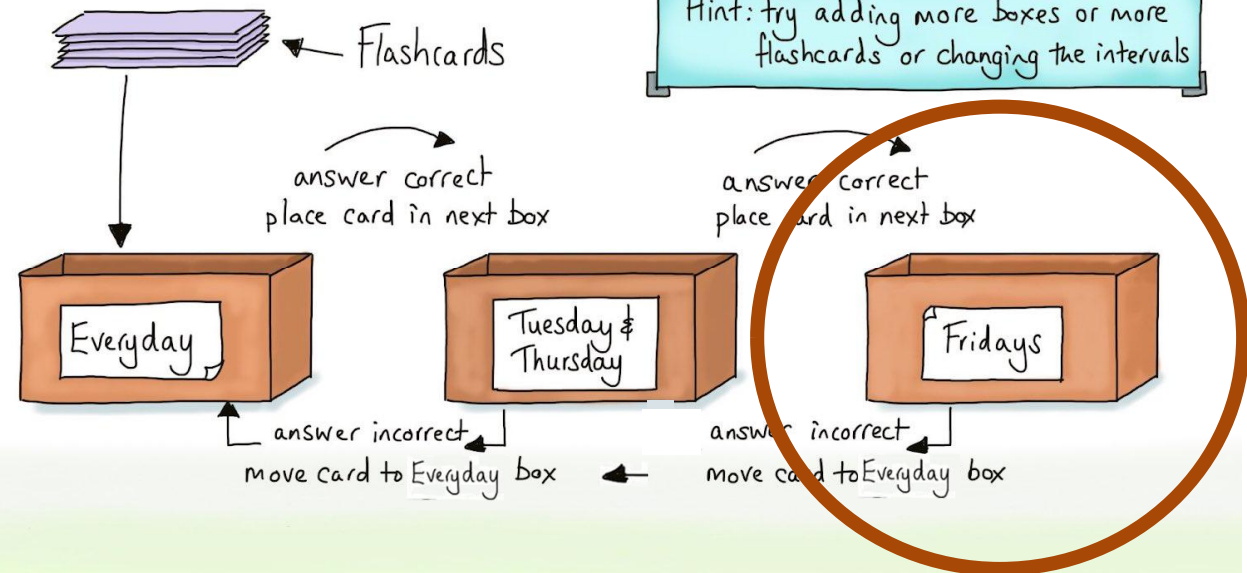 Hint: try adding more boxes or more
flashcards or changing the intervals
Flashcards
answer correct
place card in next box
answer correct
place card in next box
Everyday
Tuesday &
Thursday
Fridays
answer incorrect
move card to Everyday box
answer incorrect
move card to Everyday box